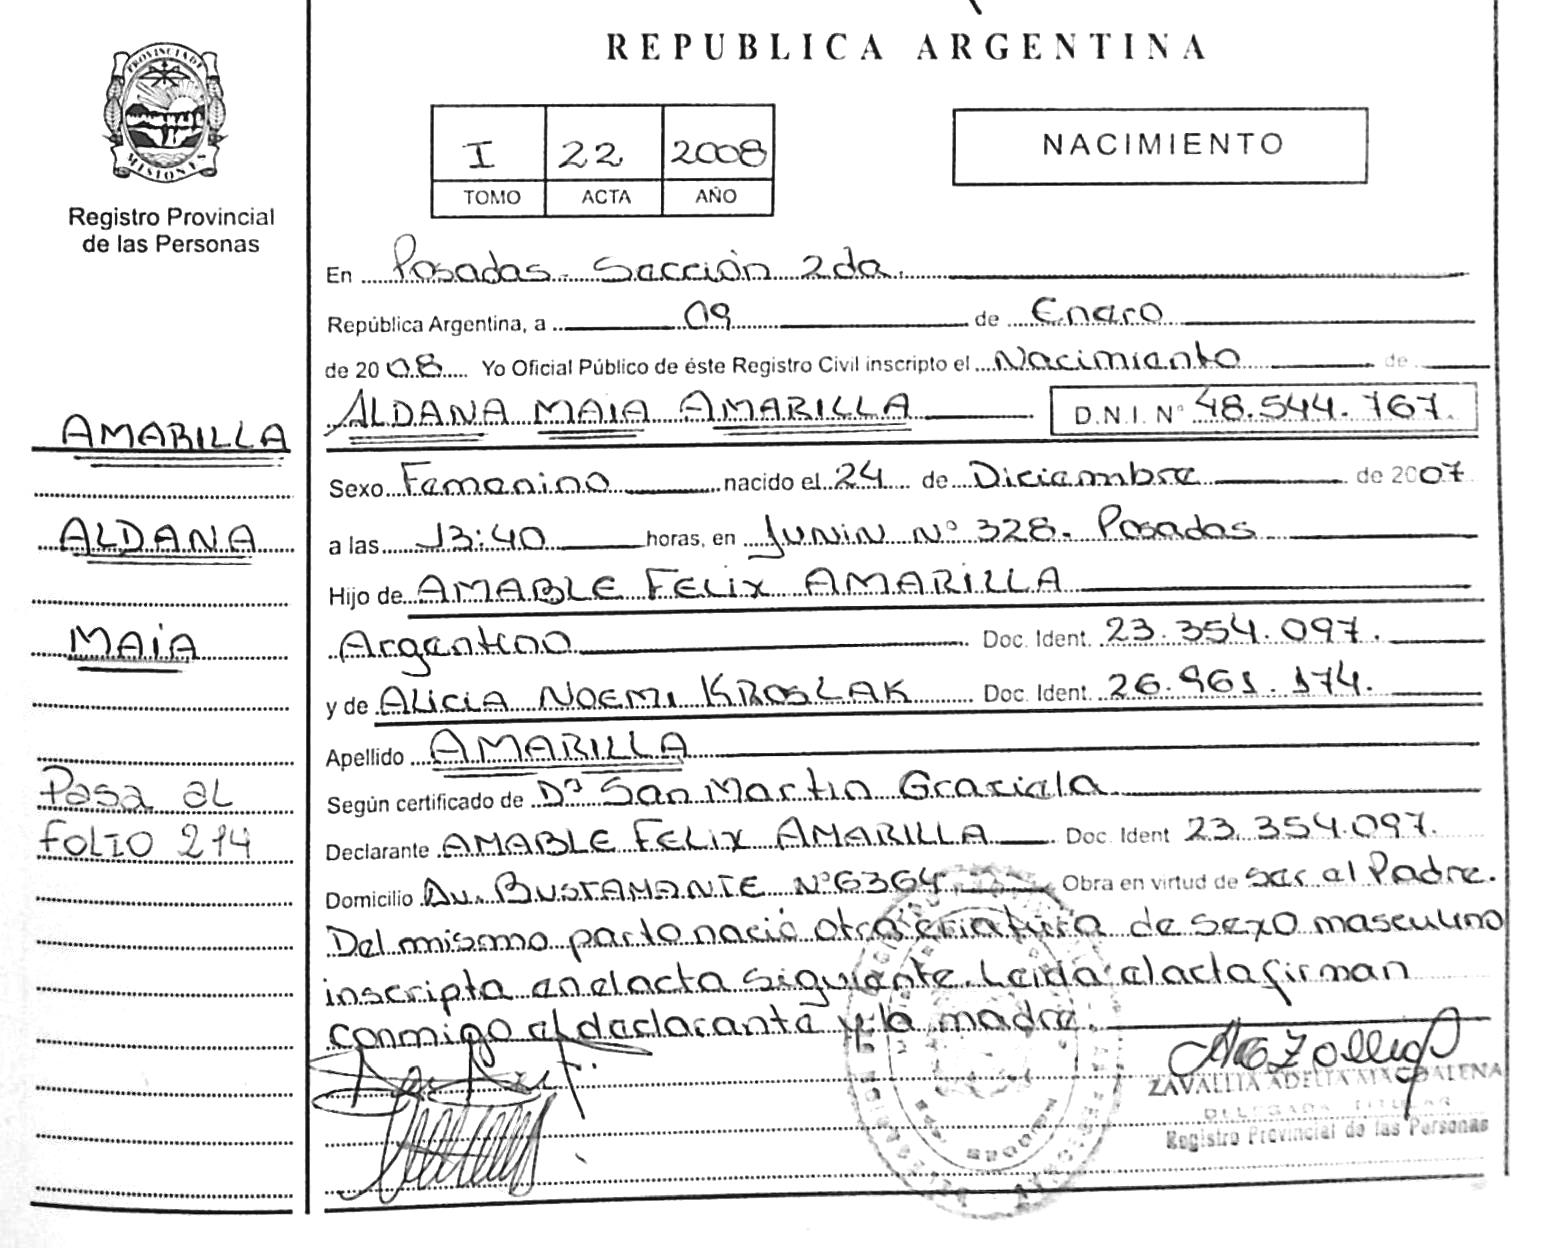 REPUBLICA ARGENTINA
PROVINCIA DE
MISIONES
Registro Provincial
de las Personas
I 22 2008
TOMO ACTA AÑO
NACIMIENTO
En Posadas. Sección 2da.
República Argentina, a 09 de Enero
de 2008 Yo Oficial Público de éste Registro Civil inscripto el Nacimiento de
ALDANA MAIA AMARILLA D.N.I. N° 48.544.767.
AMARILLA
Sexo Femenino nacido el 24 de Diciembre de 2007
ALDANA
a las 13:40 horas, en Junin N° 328. Posadas
Hijo de AMABLE FELIX AMARILLA
MAIA
Argentino Doc. Ident. 23.354.097.
y de ALICIA NOEMI KROSLAK Doc. Ident. 26.961.174.
Apellido AMARILLA
Pasa al
FOLIO 214
Según certificado de Dª San Martin Graciela
Declarante AMABLE FELIX AMARILLA Doc. Ident 23.354.097.
Domicilio Av. BUSTAMANTE N°6364 Obra en virtud de ser el Padre.
Del mismo parto nació otra criatura de sexo masculino
inscripta en el acta siguiente. Leida el acta firman
conmigo el declarante y la madre.
ZAVALLIA ADELIA MAGDALENA
DELEGADA TITULAR
Registro Provincial de las Personas